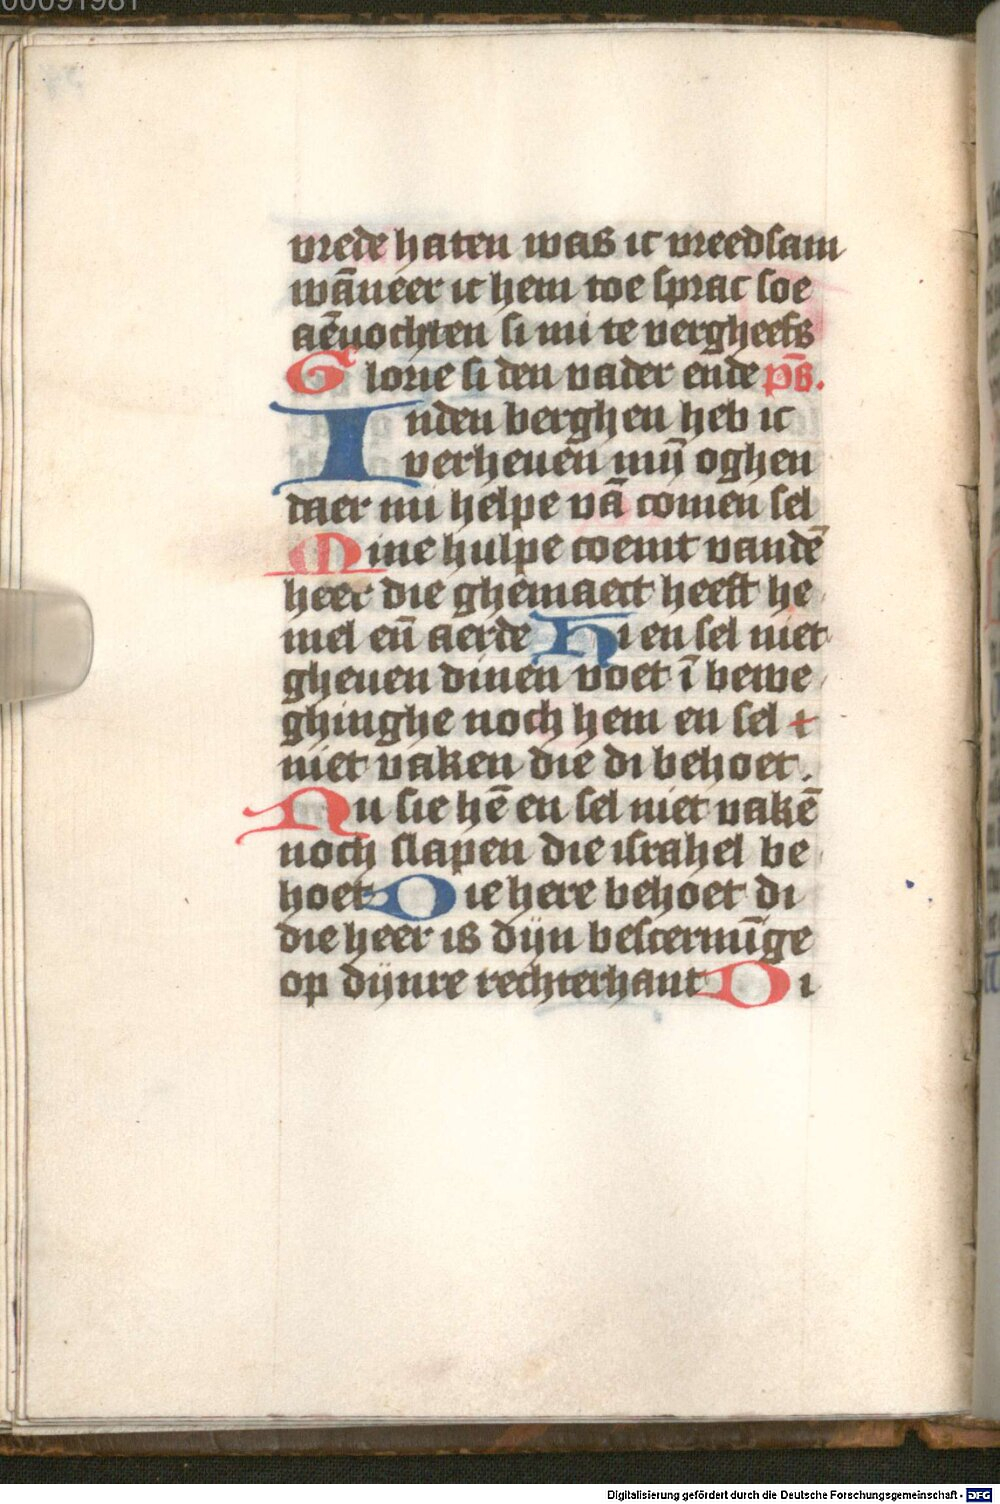 00091981
vrede haten was ic vreedsam
wāneer ic hem toe sprac soe
aēvochten si mi te vergheefs
Glorie si den vader ende p̄s.
Inden berghen heb ic
verheuen̄ mijn̄ oghen
daer mi helpe vā comen sel
Mine hulpe coemt vandē
heer die ghemaect heeft he
mel en̄ aerde Hi en sel niet
gheuen dinen voet ī bewe
ghinghe noch hem en sel +
niet vaken die di behoet.
Nu sie hē en sel niet vakē
noch slapen die israhel be
hoet Die here behoet di
die heer is dijn bescermīge
op dijnre rechterhant Di
Digitalisierung gefördert durch die Deutsche Forschungsgemeinschaft - DFG